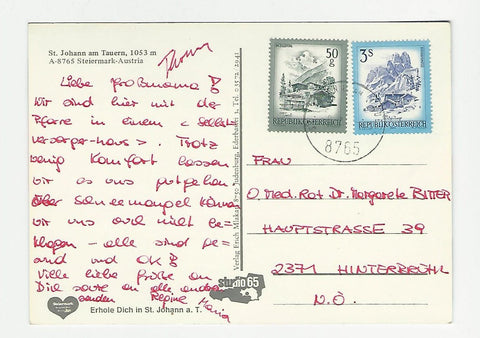 St. Johann am Tauern, 1053 m
A-8765 Steiermark-Austria
Liebe Großmama!
Wir sind hier mit der
Pfarre in einem <Selbst-
versorger-haus>. Trotz
wenig Komfort lassen
wir es uns gutgehen
Über Schneemangel können
wir uns auch nicht be-
klagen - alle sind ge-
sund und OK!
Viele liebe Grüße an
Dich sowie an alle anderen
senden Regine Maria
Steiermark
Erhole Dich in St. Johann a. T.
Verlag Erich Mlakar, 8750 Judenburg, Ederbastei, Tel. 03572/2941
50
g
REPUBLIK ÖSTERREICH
3S
REPUBLIK ÖSTERREICH
8765
FRAU
O. Med. Rat Dr. Margarete BITTER
HAUPTSTRASSE 39
2371 HINTERBRÜHL
N.Ö.